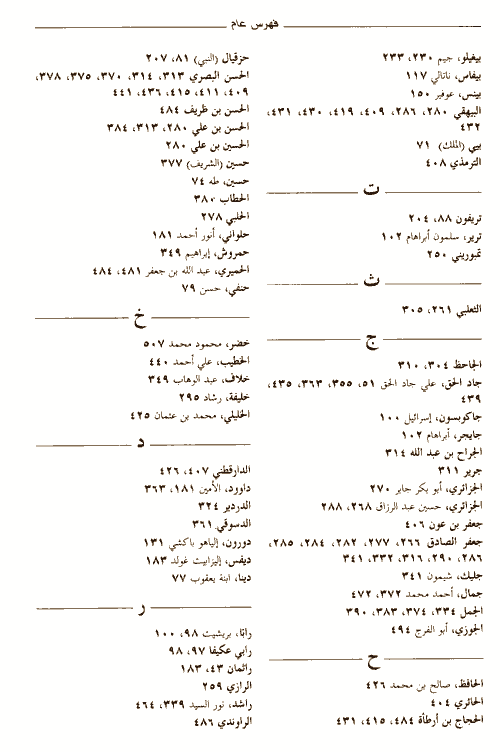 فهرس عام
بيغيلو، جيم ٢٣٠، ٢٣٣
بيفاس، ناتالي ١١٧
بينس، عوفير ١٥٠
البيهقي ٢٨٠، ٢٨٦، ٤٠٩، ٤١٩، ٤٣٠، ٤٣١،
٤٣٢
بيي (الملك) ٧١
الترمذي ٤٠٨
ت
تريفون ٨٨، ٢٠٤
ترير، سلمون أبراهام ١٠٢
تمبوريني ٢٥٠
ث
الثعلبي ٢٦١، ٣٠٥
ج
الجاحظ ٣٠٤، ٣١٠
جاد الحق، علي جاد الحق ٥١، ٣٥٥، ٣٦٣، ٤٣٥،
٤٣٩
جاكوبسون، إسرائيل ١٠٠
جايجر، أبراهام ١٠٢
الجراح بن عبد الله ٣١٤
جرير ٣١١
الجزائري، أبو بكر جابر ٢٧٠
الجزائري، حسين عبد الرزاق ٢٦٨، ٢٨٨
جعفر بن عون ٤٠٦
جعفر الصادق ٢٦٦، ٢٧٧، ٢٨٢، ٢٨٤، ٢٨٥،
٢٨٦، ٢٩٠، ٣١٦، ٣٣٢، ٣٤١
جليك، شيمون ٣٤١
جمال، أحمد محمد ٣٧٢، ٤٧٢
الجمل ٣٣٤، ٣٧٤، ٣٨٣، ٣٩٠
الجوزي، أبو الفرج ٤٩٤
ح
الحافظ، صالح بن محمد ٤٢٦
الحائري ٤٠٤
الحجاج بن أرطأة ٤٨٤، ٤١٥، ٤٣١
حزقيال (النبي) ٨١، ٢٠٧
الحسن البصري ٣١٣، ٣١٤، ٣٧٠، ٣٧٥، ٣٧٨،
٤٠٩، ٤١١، ٤١٥، ٤٣٦، ٤٤١
الحسن بن ظريف ٤٨٤
الحسن بن علي ٢٨٠، ٣١٣، ٣٨٤
الحسين بن علي ٢٨٠
حسين (الشريف) ٣٧٧
حسين، طه ٧٤
الحطاب ٣٨٠
الحلبي ٢٧٨
حلواني، أنور أحمد ١٨١
حمروش، إبراهيم ٣٤٩
الحميري، عبد الله بن جعفر ٤٨١، ٤٨٤
حنفي، حسن ٧٩
خ
خضر، محمود محمد ٥٠٧
الخطيب، علي أحمد ٤٤٠
خلاف، عبد الوهاب ٣٤٩
خليفة، رشاد ٢٩٥
الخليلي، محمد بن عثمان ٤٢٥
د
الدارقطني ٤٠٧، ٤٢٦
داوود، الأمين ١٨١، ٣٦٣
الدردير ٣٢٤
الدسوقي ٣٦١
دورون، إلياهو باكشي ١٣١
ديفس، إليزابيث غولد ١٨٣
دينا، ابنة يعقوب ٧٧
ر
رابّا، بريشيت ٩٨، ١٠٠
رابي عكيفا ٩٧، ٩٨
راثمان ٤٣، ١٨٣
الرازي ٢٥٩
راشد، نور السيد ٣٣٩، ٤٦٤
الراوندي ٤٨٦